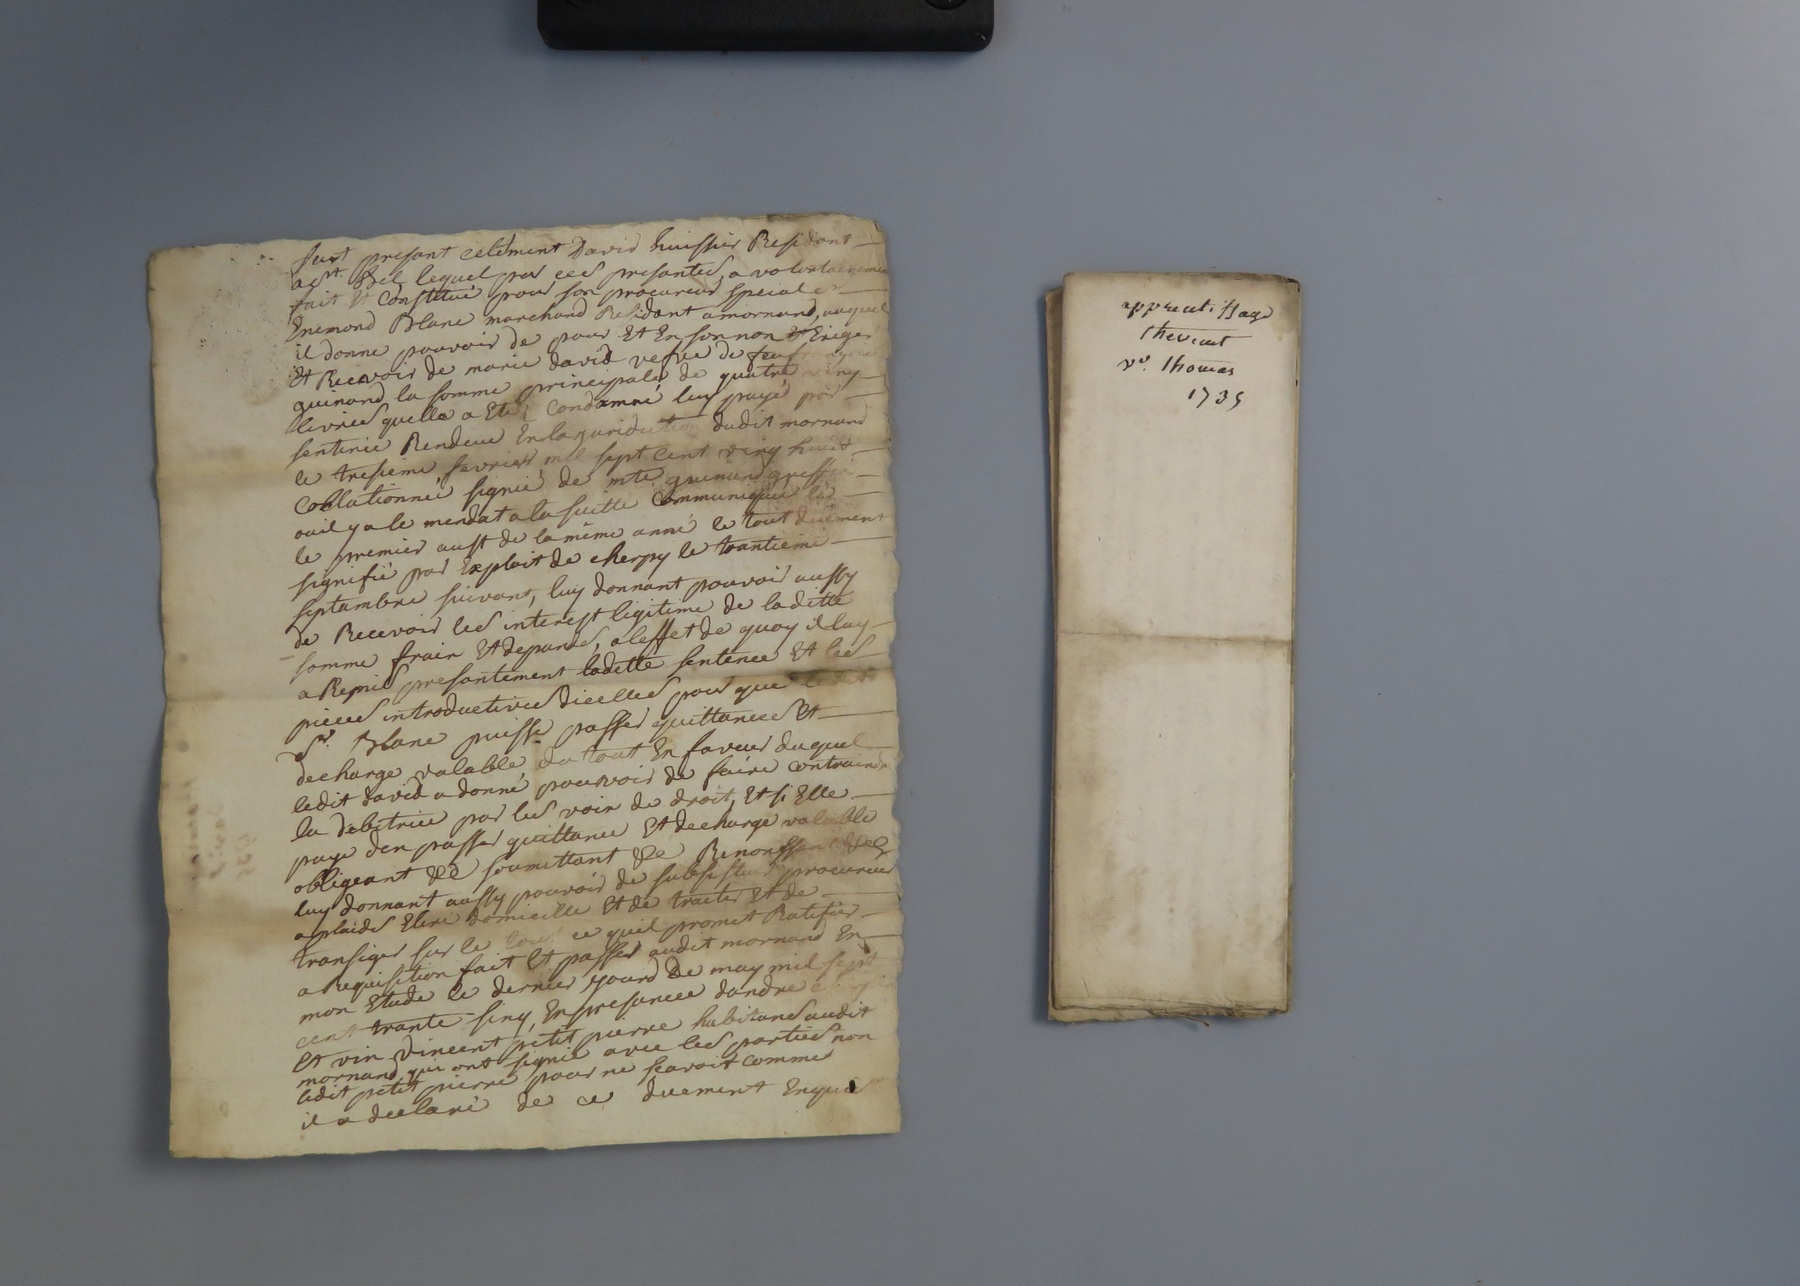 fust presant celément David huissier Residant
a st. Bel lequel par ces presantes, a volontairement
fait et constitué pour son procureur special
Enemond Blanc marchand Residant a mornand, auquel
il donne pouvoir de pour Et En son non Exiger
et Recevoir de marie david vefve de feu françois
guinand la somme principale de quatre ving
livres quelle a Eté Condamné luy payé par
sentence Rendeue En la juridiction dudit mornand
le tresieme fevrier mil sept cent ving huict
Collationné signié de mte guinand greffier
ou il y a le mendat a la suitte communiquée
le premier aust de la même anné le tout duement
signifié par Exploit de cherpy le trantieme
septambre suivant, luy donnant pouvoir aussy
de Recevoir les interest legitime de laditte
somme frais Et depands, a leffet de quoy il luy
a Remis presantement laditte sentence Et les
pieces introductives dicelles pour que ledit
Sr. Blanc puisse passer quittance Et
decharge valable du tout En faveur duquel
ledit david a donné pouvoir de faire contraindre
la debitrice par les voix de droit, Et si Elle
paye den passer quittance Et decharge valable
obligeant &c soumettant &c Renonssant &c
luy donnant aussy pouvoir de subsistuer procureur
a plaids Elire domicille Et de traiter Et de
transiger sur le tout ce quil promet Ratifier
a Requisition fait Et passer audit mornand En
mon Etude le dernier jourd de may mil sept
cent trante sinq, En presance dandre
Et vin Vincent petit pierre habitans audit
mornand qui ont signié avec les parties non
ledit petit pierre pour ne scavoir comme
il a declaré de ce duement Enquis
apprentissage
thevenet
vs. thomas
1735